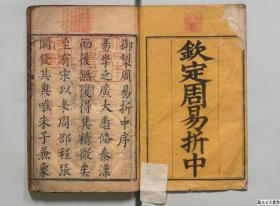 欽定周易折中
御製周易折中序
易學之廣大悉備秦漢
而後無復得其精微矣
至有宗以來周邵程張
闡發其奧唯朱子兼象